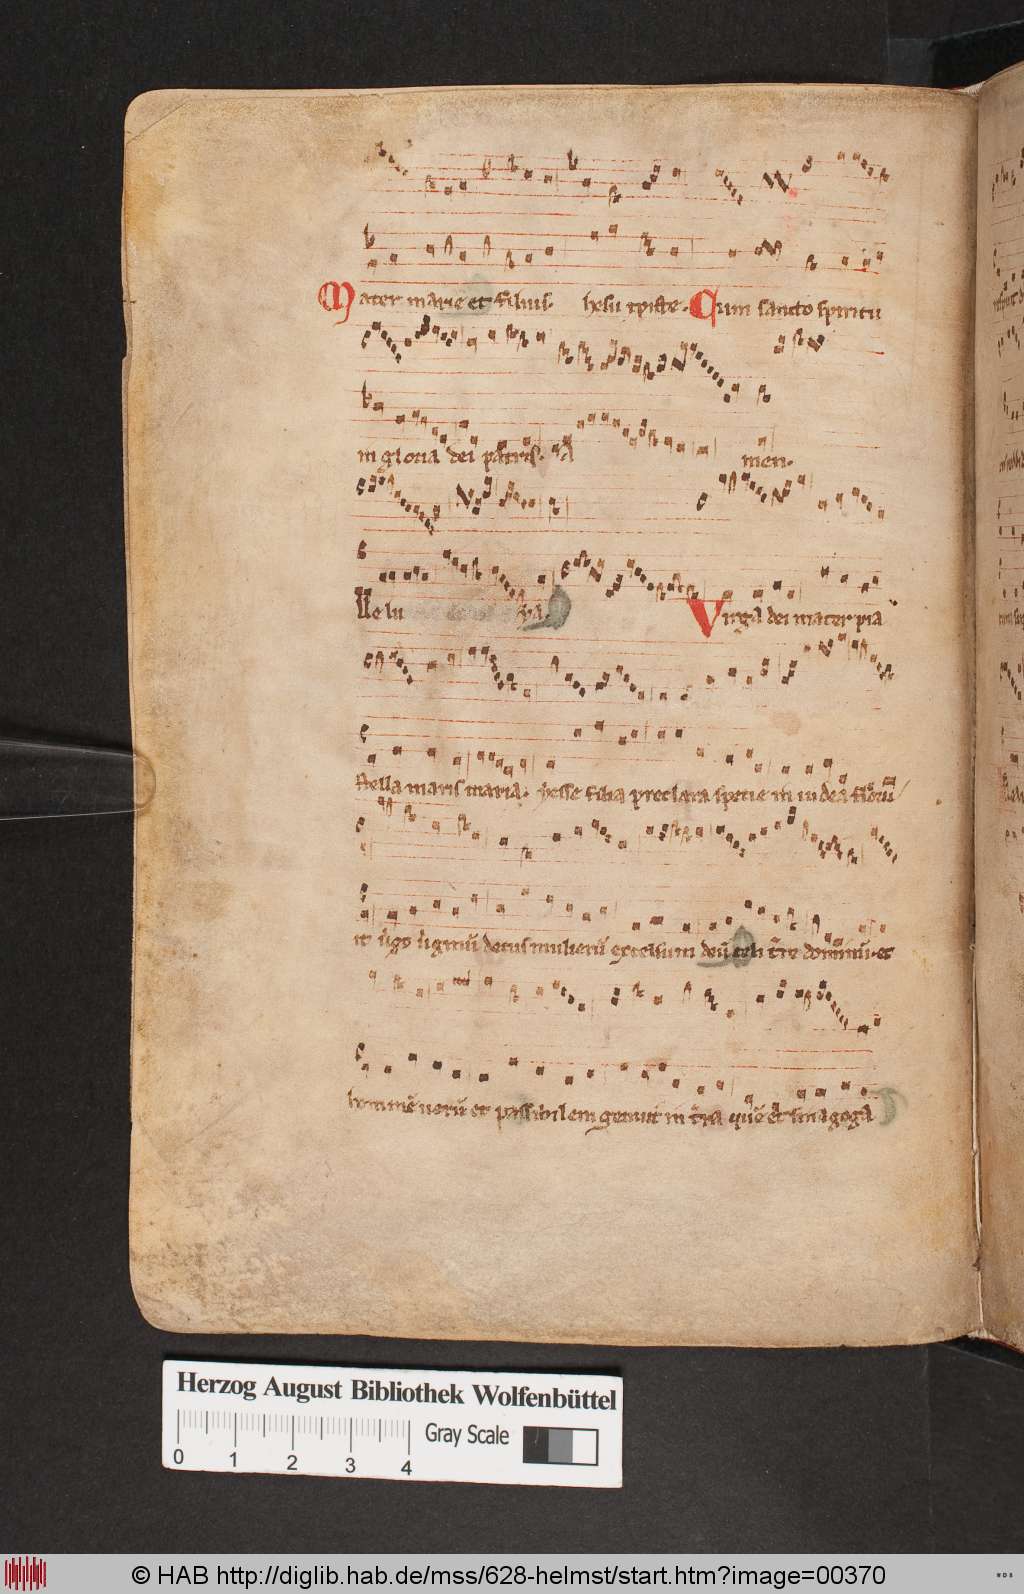 Mater marie et filius. hesu xpiste. Cum sancto spiritu
in gloria dei patris. A men.
lle lu ya. Virga dei mater pia
stella maris maria. yesse filia preclara specie in iudea floru
it decus mulierū excelsum deū celi dominū. et
hominē verū et passibilem genuit in quē et sinagoga
Herzog August Bibliothek Wolfenbüttel
Gray Scale
0 1 2 3 4
© HAB http://diglib.hab.de/mss/628-helmst/start.htm?image=00370
WDB